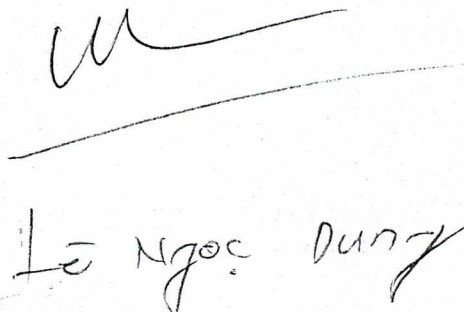 Lê Ngọc Dung